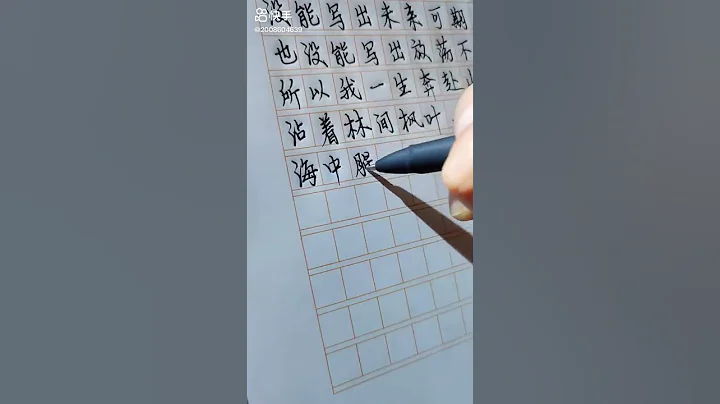 快手
@2008604639
没能写出未来可期
也没能写出放荡不
所以我一生奔赴山
沾着林间枫叶
海中